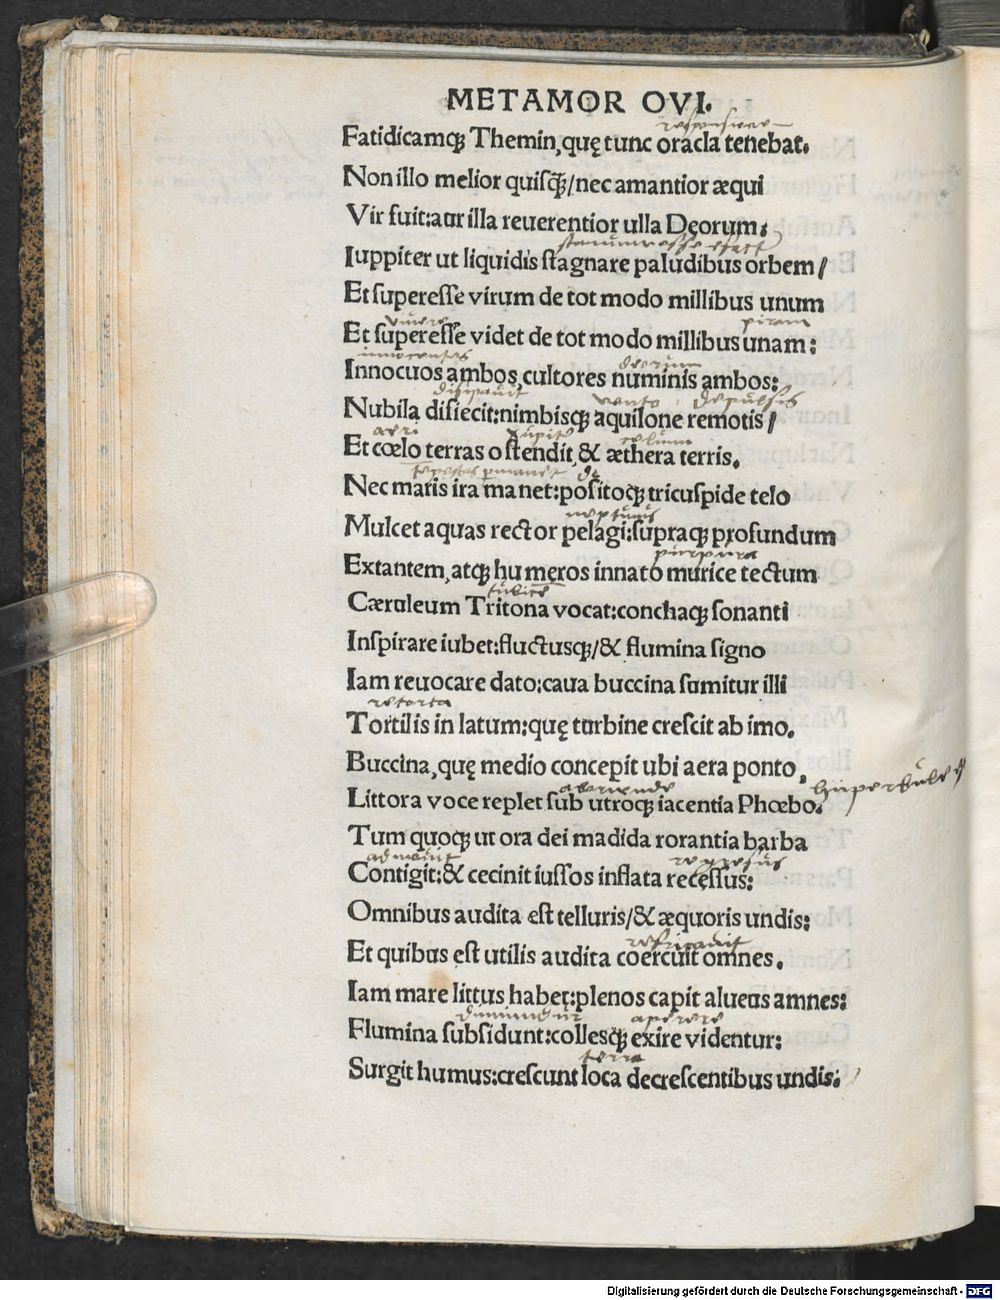 METAMOR OVI.
Fatidicamq; Themin, quę tunc oracla tenebat.
Non illo melior quisq̃/nec amantior æqui
Vir fuit: aut illa reuerentior ulla Deorum:
Iuppiter ut liquidis ſtagnare paludibus orbem/
Et ſupereſſe virum de tot modo millibus unum
viuere
Et ſupereſſe videt de tot modo millibus unam:
innocentes deorum
Innocuos ambos, cultores numinis ambos:
disipauit vento depulsis
Nubila diſiecit: nimbisq; aquilone remotis/
aeri
Et cœlo terras oſtendit, & æthera terris.
Nec maris ira manet: poſitoq; tricuſpide telo
neptunus
Mulcet aquas rector pelagi: ſupraq; profundum
purpura
Extantem, atq; humeros innato murice tectum
Cæruleum Tritona vocat: conchaq; ſonanti
Inſpirare iubet: fluctusq;/& flumina ſigno
Iam reuocare dato: caua buccina ſumitur illi
retorta
Tortilis in latum: quę turbine creſcit ab imo.
Buccina, quę medio concepit ubi aera ponto,
Littora voce replet ſub utroq; iacentia Phœbo.
Tum quoq; ut ora dei madida rorantia barba
regresus
Contigit: & cecinit iuſſos inflata receſſus:
Omnibus audita eſt telluris/& æquoris undis:
Et quibus eſt utilis audita coercuit omnes.
Iam mare littus habet: plenos capit alueus amnes:
aperere
Flumina ſubſidunt: collesq; exire videntur:
terra
Surgit humus: creſcunt loca decreſcentibus undis:
Digitalisierung gefördert durch die Deutsche Forschungsgemeinschaft - DFG